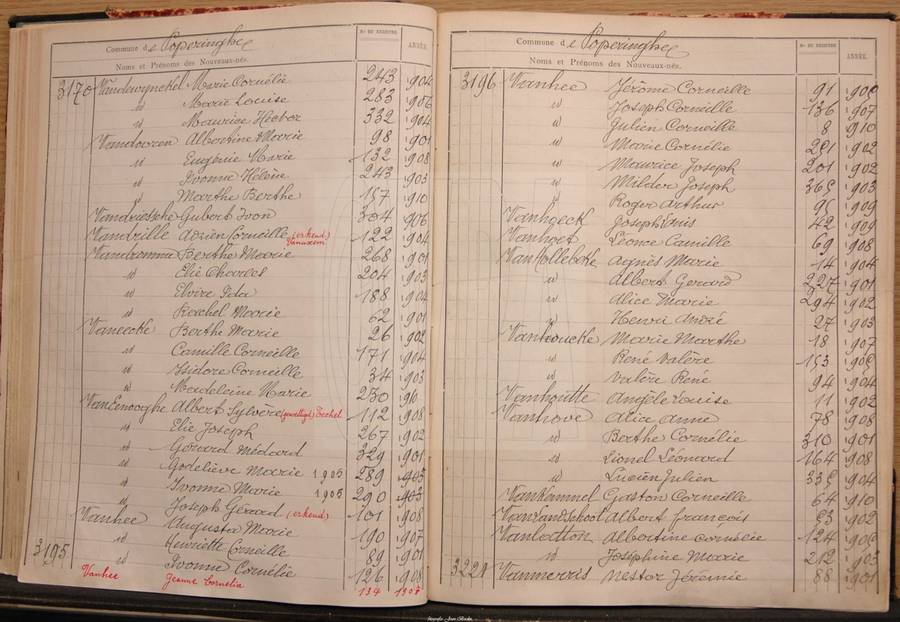 Commune de Poperinghe
Nos DU REGISTRE
ANNÉE.
Noms et Prénoms des Nouveaux-nés.
3170 Vandewynckel Marie Cornélie 243 1906
id Marie Louise 283 1906
id Maurice Hector 332 1904
Vandooren Albertine Marie 98 1901
id Eugénie Marie 132 1908
id Ivonne Hélène 243 1903
id Marthe Berthe 157 1910
Vandriessche Gubert Ivon 304 1906
Vandrille Adrien Corneille (erkend) Vanuxem 122 1904
Vandromme Berthe Marie 268 1901
id Elie Charles 204 1903
id Elvire Ida 188 1904
id Rachel Marie 62 1901
Vaneecke Berthe Marie 26 1902
id Camille Corneille 171 1904
id Isidore Corneille 34 1903
id Madeleine Marie 230 190
VanEenooghe Albert Sylvère (gewettigd) 112 1908
id Elie Joseph 267 1902
id Gérard Médard 329 1901
id Godeliève Marie 1905 289 1903
id Ivonne Marie 1905 290 1903
id Joseph Gérard (erkend) 101 1908
Vanhee Augusta Marie 190 1907
id Henriette Corneille 89 1901
3195 id Ivonne Cornélie 126 1908
Vanhee Jeanne Cornelia 134 1908
Commune de Poperinghe
Nos DU REGISTRE
ANNÉE.
Noms et Prénoms des Nouveaux-nés.
3196 Vanhee Jérôme Corneille 91 1900
id Joseph Corneille 136 1907
id Julien Corneille 8 1910
id Marie Cornélie 261 1902
id Maurice Joseph 201 1902
id Mildor Joseph 365 1903
id Roger Arthur 1909
Vanhoeck Joseph 42 1909
Vanhoet Léonce Camille 69 1908
VanHollebeke Agnès Marie 14 1904
id Albert Gérard 227 1901
id Alice Marie 294 1902
id Henri André 27 1903
Vanhoucke Marie Marthe 18 1907
id René Valère 153 190
id Valère René 94 1904
Vanhoutte Angèle Louise 11 1902
Vanhove Alice Anna 78 1908
id Berthe Cornélie 310 1901
id Lionel Léonard 164 1908
id Lucien Julien 335 1904
VanKemmel Gaston Corneille 64 1910
VanLandschoot Albert François 83 1902
Vanlatton Albertine Cornélie 124 190
id Joséphine Marie 212 1903
3221 Vanmerris Nestor Jérémie 88 1901